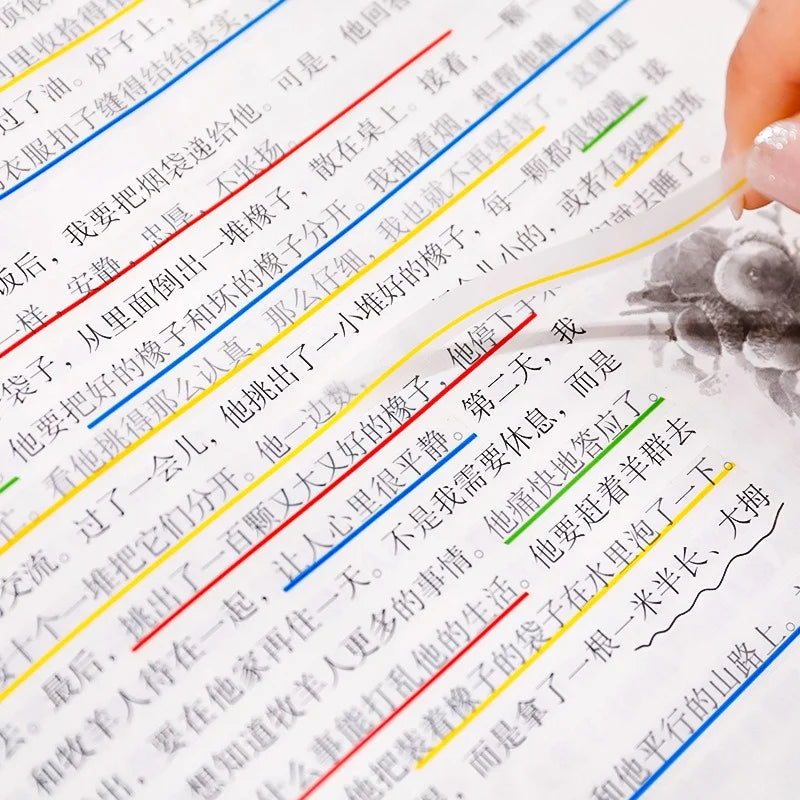 里收拾得很
过了油。炉子上,
衣服扣子缝得结结实实,
饭后,我要把烟袋递给他。可是,他回答
一样,安静,忠厚,不张扬。
袋子,从里面倒出一堆橡子,散在桌上。接着,一颗一颗
他要把好的橡子和坏的橡子分开。我抽着烟,想帮他挑,但
忙。看他挑得那么认真,那么仔细,我也就不再坚持了。这就是
交流。过了一会儿,他挑出了一小堆好的橡子,每一颗都很饱满。接
十个一堆把它们分开。他一边数,一边儿小的,或者有裂缝的拣
去。最后,挑出了一百颗又大又好的橡子,他停下手来们就去睡了。
和牧羊人待在一起,让人心里很平静。第二天,我
出,要在他家再住一天。不是我需要休息,而是
想知道牧羊人更多的事情。他痛快地答应了。
什么事能打乱他的生活。他要赶着羊群去
他把装着橡子的袋子在水里泡了一下。
,而是拿了一根一米半长、大拇
和他平行的山路上。